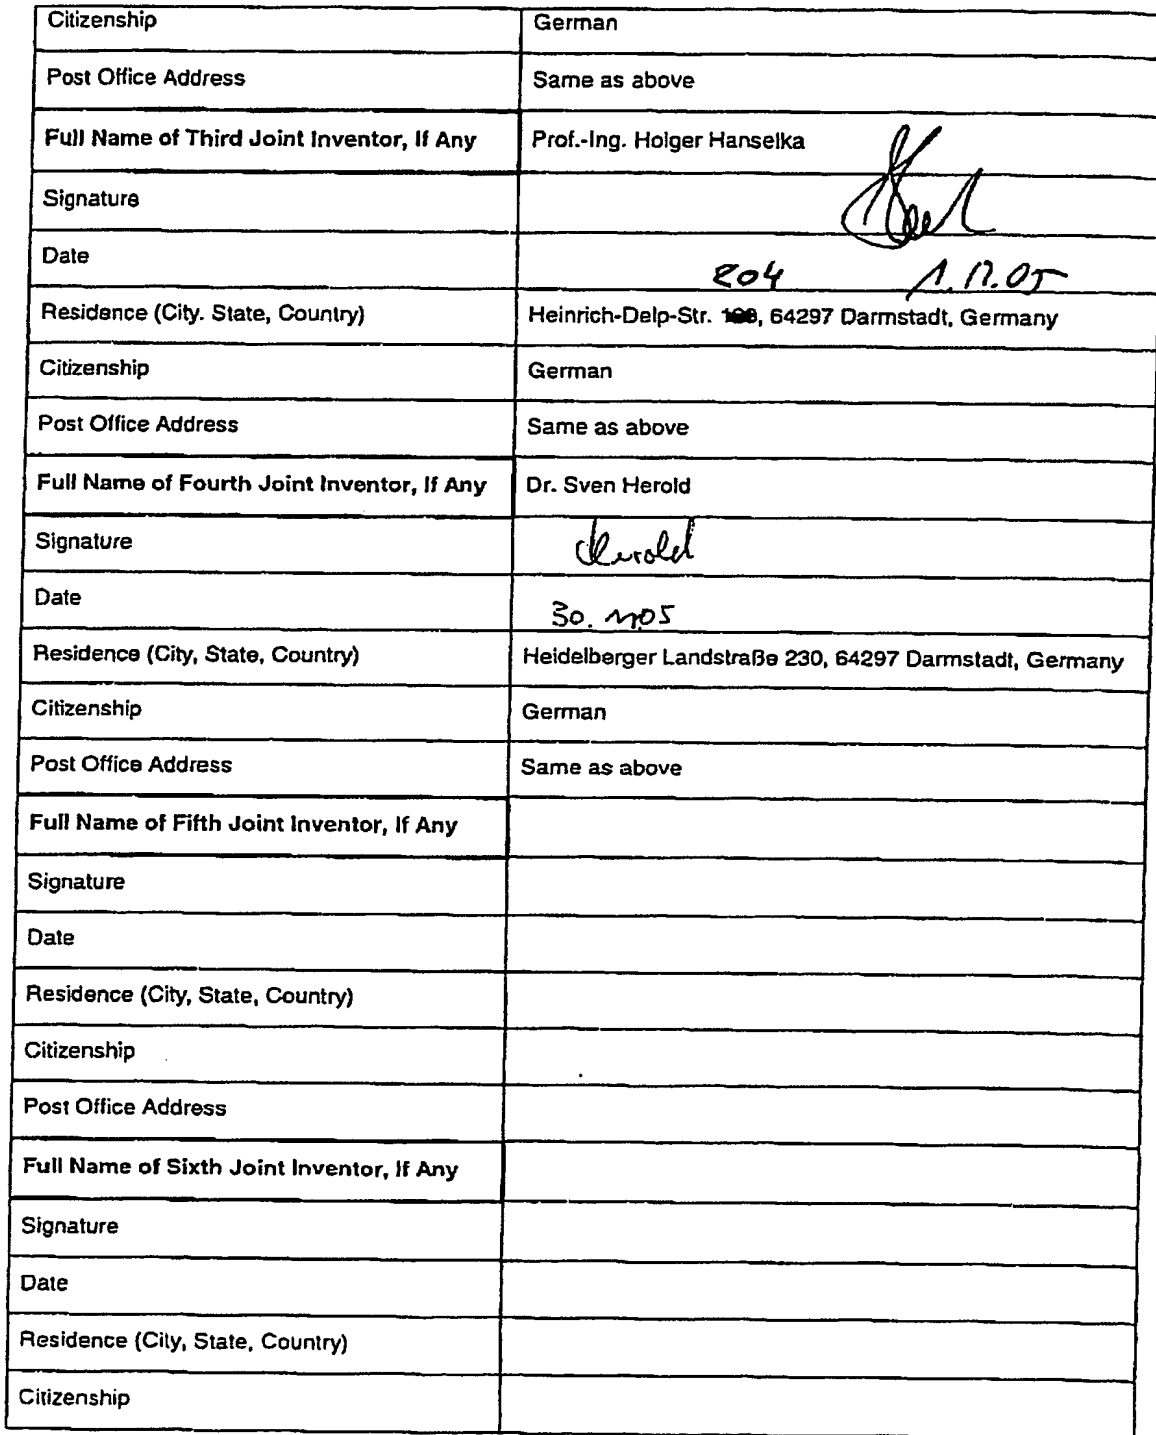 Citizenship German
Post Office Address Same as above
Full Name of Third Joint Inventor, If Any Prof.-Ing. Holger Hanselka
Signature
Date 204 1.12.05
Residence (City. State, Country) Heinrich-Delp-Str. , 64297 Darmstadt, Germany
Citizenship German
Post Office Address Same as above
Full Name of Fourth Joint Inventor, If Any Dr. Sven Herold
Signature Herold
Date 30. 11.05
Residence (City, State, Country) Heidelberger Landstraße 230, 64297 Darmstadt, Germany
Citizenship German
Post Office Address Same as above
Full Name of Fifth Joint Inventor, If Any
Signature
Date
Residence (City, State, Country)
Citizenship
Post Office Address
Full Name of Sixth Joint Inventor, If Any
Signature
Date
Residence (City, State, Country)
Citizenship